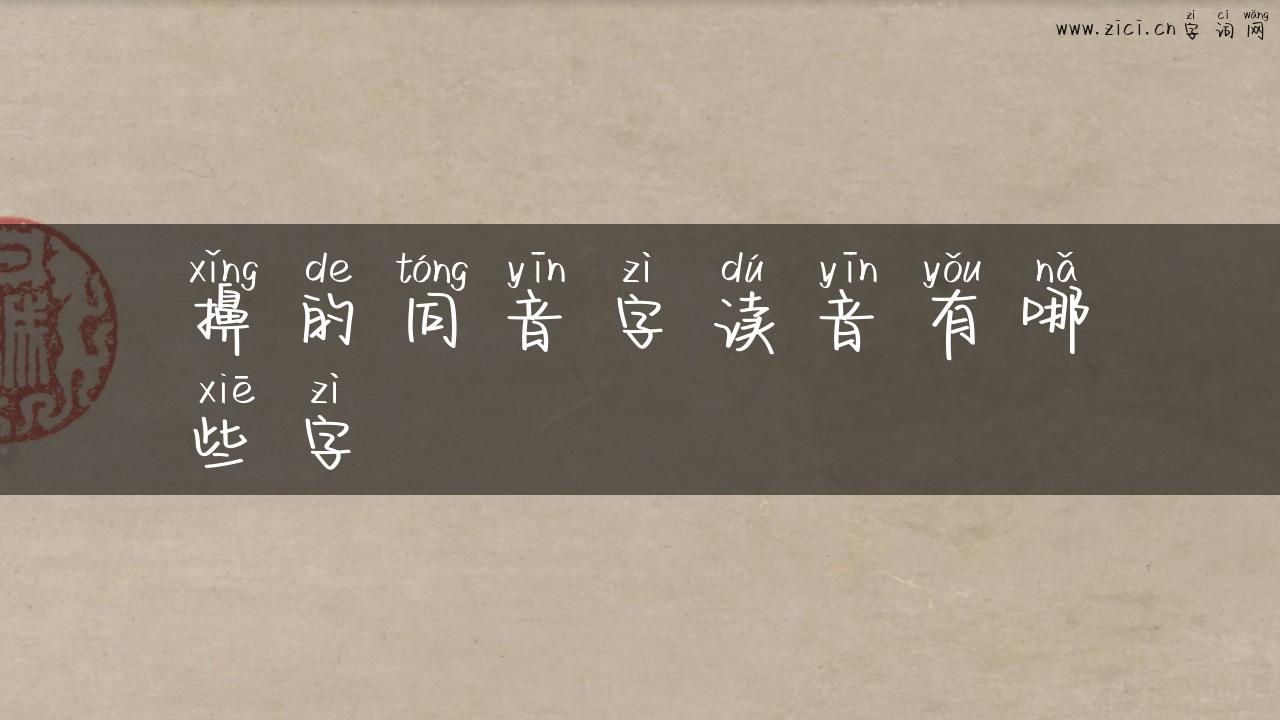 www.zici.cn zì cí wǎng
字词网
xǐng de tóng yīn zì dú yīn yǒu nǎ
擤的同音字读音有哪
xiē zì
些字